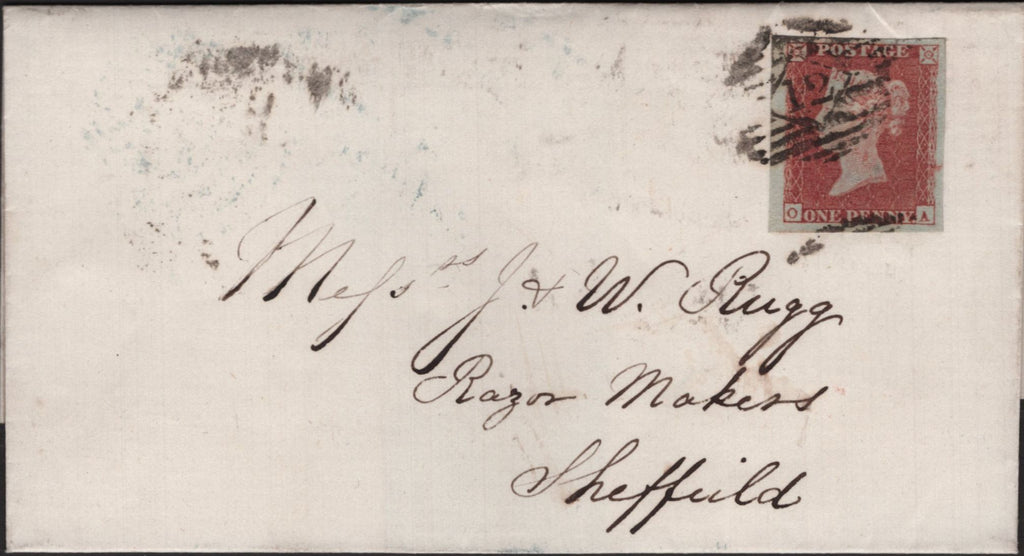 POSTAGE
12
O ONE PENNY A
Messrs J. & W. Rugg
Razor Makers
Sheffeild